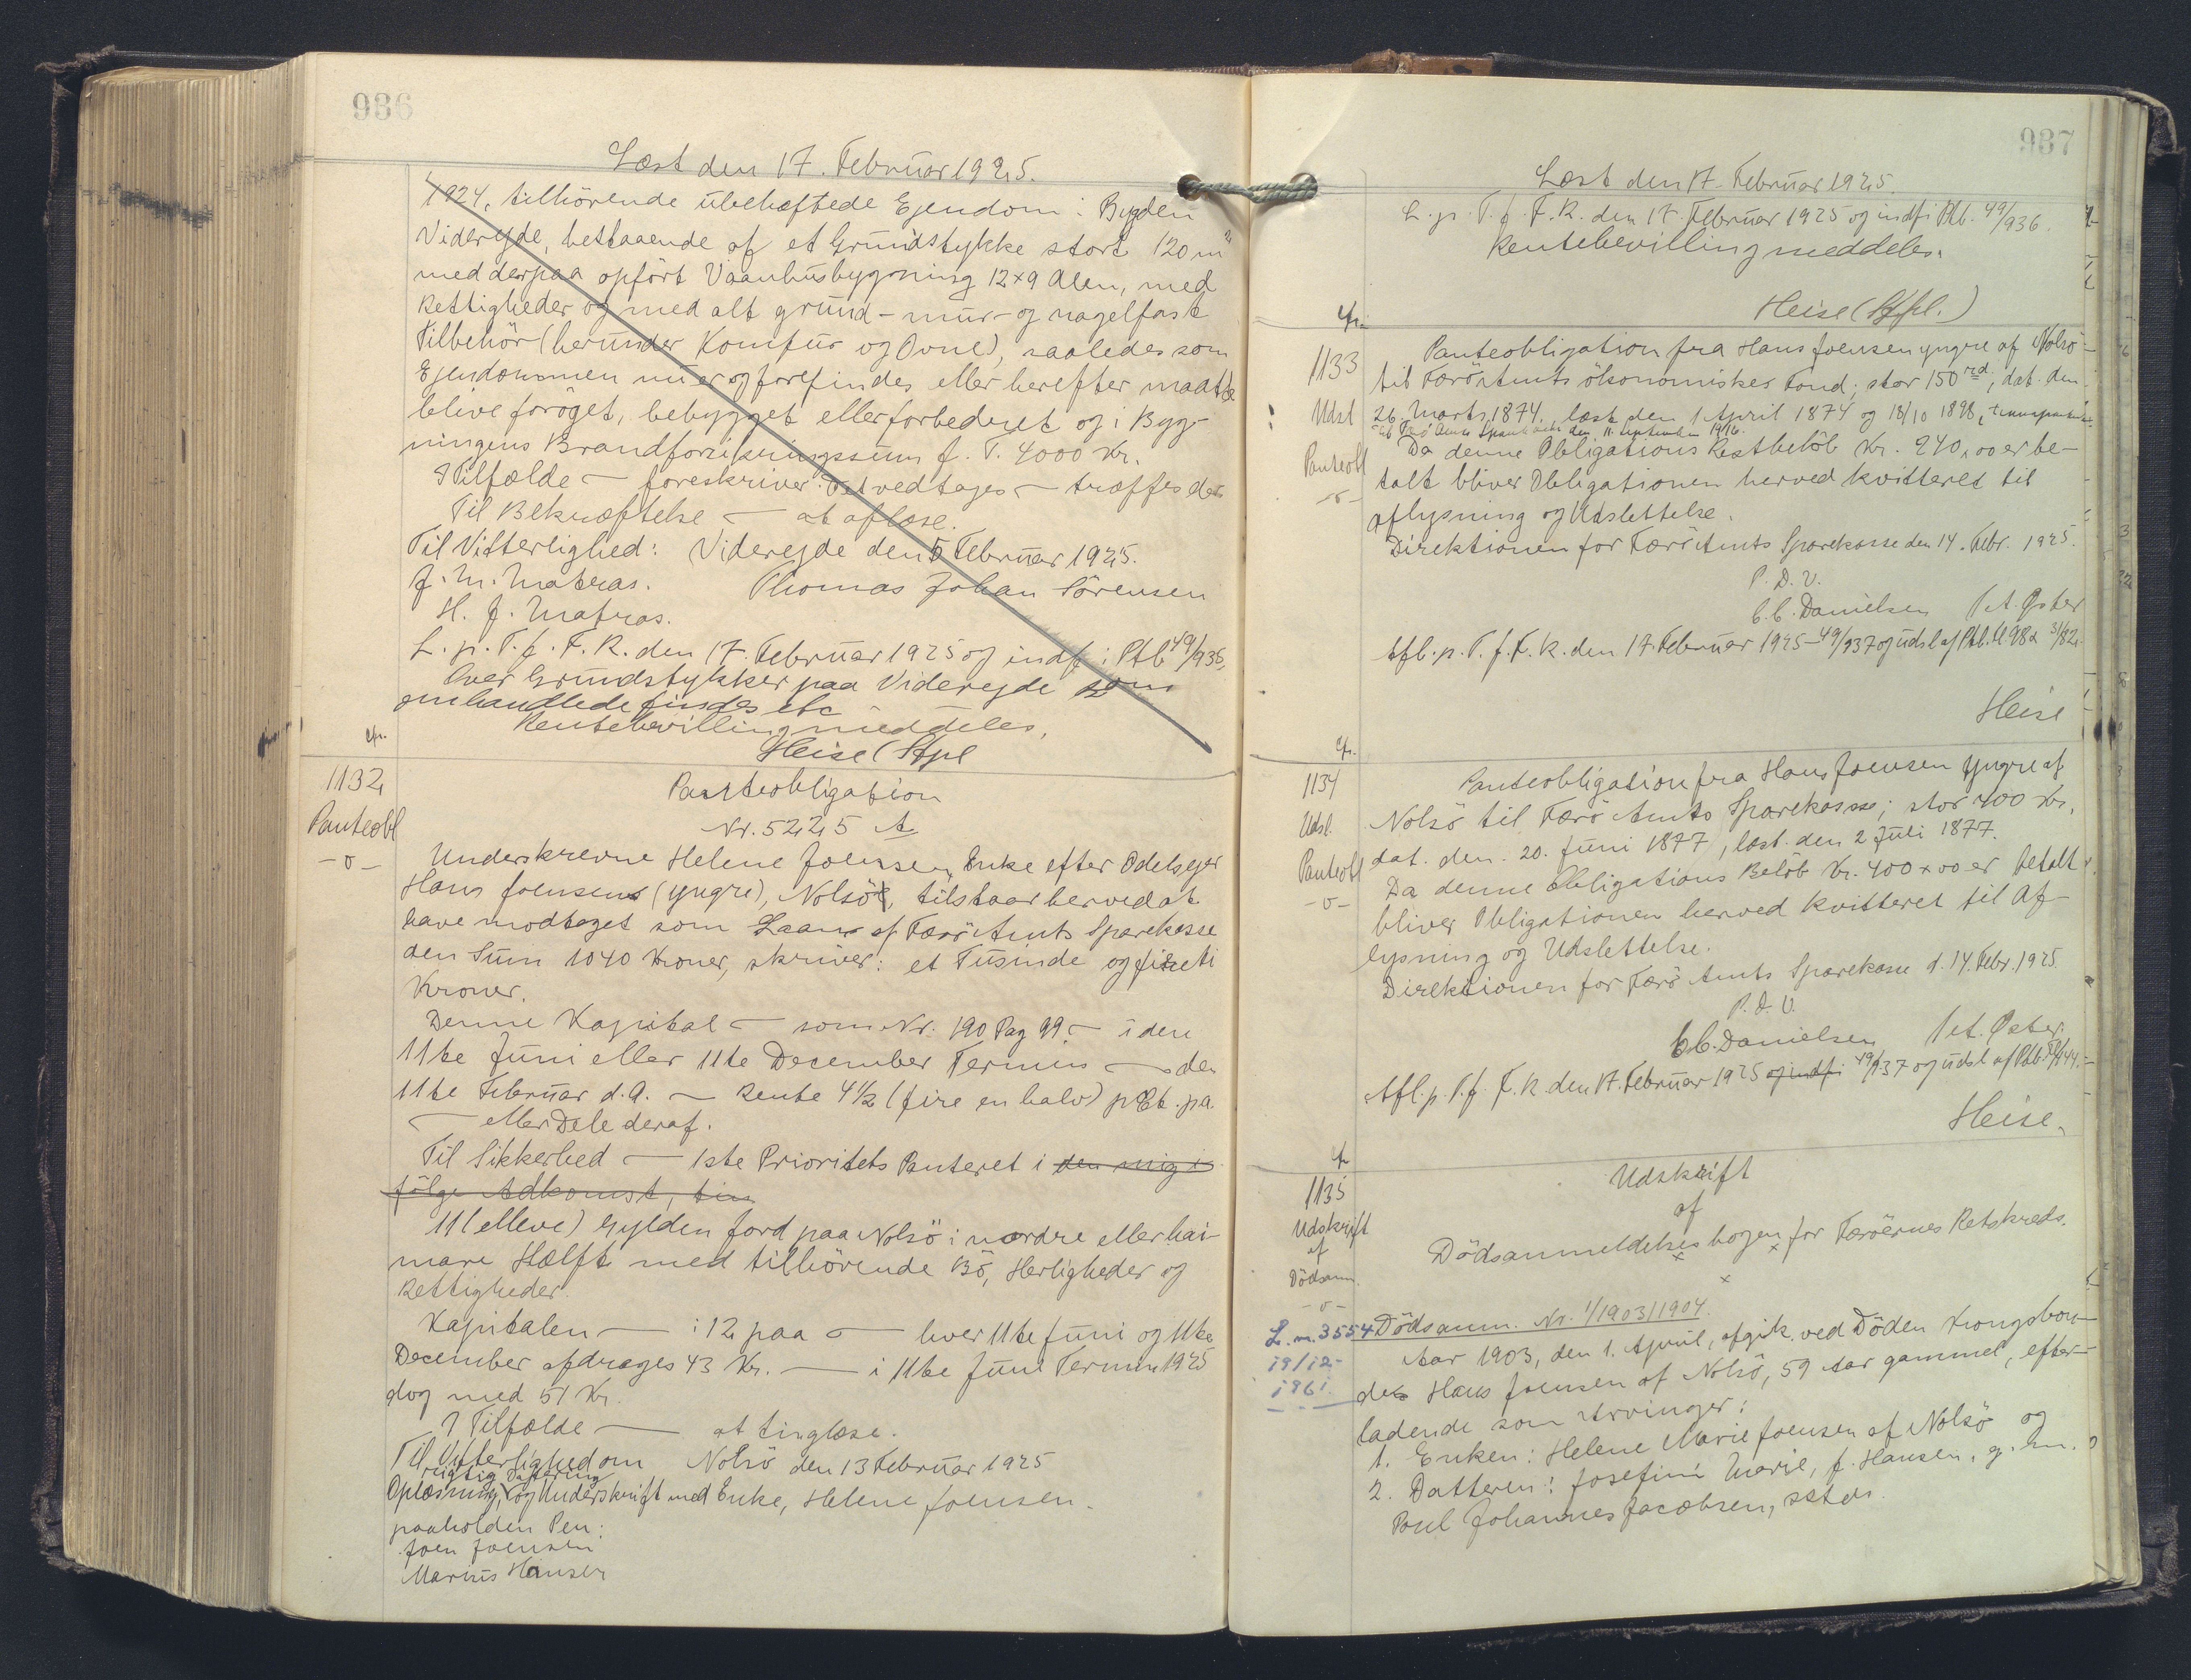 936
Læst den 17. Februar 1925.
1924, tilhörende übehæftede Ejendom i Bygden
Viderejde, bestaaende af et Grundstykke stort 120 m²
med derpaa opfört Vaanhusbygning 12x9 Alen, med
Rettigheder og med alt grund- mur- og nagelfast
Tilbehör (herunder Komfur og Ovne), saaledes som
Ejendommen nu er og forefindes eller herefter maatte
blive foröget, bebygget eller forbedret og i Byg-
ningens Brandforsikringssum f. T. 4000 Kr.
I Tilfælde — foreskriver. Det vedtages — træffes der
Til Bekræftelse — at aflæse.
Til Vitterlighed: Viderejde den 5 Februar 1925.
J. M. Matras. Thomas Johan Sörensen
H. J. Matras.
L. p. T. f. F. R. den 17. Februar 1925 og indf. i Ptb 49/936,
Over Grundstykker paa Viderejde som
omhandlede findes etc
Rentebevilling meddeles.
Heise (Stpl
cfr.
1132
Panteobl
-o-
Panteobligation
Nr. 5225 A
Underskrevne Helene Joensen, Enke efter Odelsejer
Hans Joensen (yngre), Nolsö, tilstaar herved at
have modtaget som Laan af Færö Amts Sparekasse
den Sum 1040 Kroner, skriver: et Tusinde og fireti
Kroner.
Denne Kapital — som Nr. 190 Pag 99. — i den
11te Juni eller 11te December Termin — den
11te Februar d.A. — Rente 4½ (fire en halv) pCt. pa.
— eller Dele deraf.
Til Sikkerhed — 1ste Prioritets Panteret i den mig i
fölge Adkomst, tin
11 (elleve) Gylden Jord paa Nolsö i nordre eller hai-
mare Hælft med tilhörende Bö, Herligheder og
Rettigheder.
Kapitalen — i 12 paa — hver 11te Juni og 11te
December afdrages 43 Kr. — i 11te Juni Termin 1925
dog med 51 Kr.
I Tilfælde — at tinglæse.
Til Vitterlighed om Nolsö den 13 Februar 1925
rigtig Datering
Oplæsning, og Underskrift med Enke, Helene Joensen.
paaholden Pen:
Joen Joensen
Marius Hansen
937
Læst den 17. Februar 1925.
L. p. T. f. F. R. den 17. Februar 1925 og indf i Ptb. 49/936.
Rentebevilling meddeles.
Heise (Stpl.)
cfr.
1133
Udsl
Panteobl
-o-
Panteobligation fra Hans Joensen yngre af Nolsö
til Færö Amts ökonomiske Fond; stor 150 rd, dat. den
26. Marts 1874, læst den 1 April 1874 og 18/10 1898, transporteret
til Færö Amts Sparekasse den 11 September 1916.
Da denne Obligations Restbelöb Kr. 240,00 er be-
talt bliver Obligationen herved kvitteret til
aflysning og Udslettelse.
Direktionen for Færö Amts Sparekasse den 14. Febr. 1925.
P. D. V.
C. C. Danielsen / A. Öster
Afl. p. T. f. F. R. den 17. Februar 1925 - 49/937 og udsl af Ptb.
Heise
cfr.
1134
Udsl.
Panteobl
-o-
Panteobligation fra Hans Joensen yngre af
Nolsö til Færö Amts Sparekasse; stor 400 Kr,
dat. den. 20. Juni 1877, læst. den 2 Juli 1877.
Da denne Obligations Belöb Kr. 400 x 00 er betalt
bliver Obligationen herved kvitteret til af-
lysning og Udslettelse.
Direktionen for Færö Amts Sparekasse d. 14. Febr. 1925.
P. D. V.
C. C. Danielsen / A. Öster.
Afl. p. T. f. F. R. den 17. Februar 1925 og indf i 49/937 og udsl af Ptb.
Heise.
cfr
1135
Udskrift
af
Dödsanm.
-o-
Udskrift
af
Dödsanmeldelsesbogen for Færöernes Retskreds.
L. nr. 3554
19/12-
1961.
Dödsanm. Nr. 1/1903/1904.
Aar 1903, den 1. April, afgik ved Döden Kongsbon-
de Hans Joensen af Nolsö, 59 Aar gammel, efter-
ladende som Arvinger:
1. Enken: Helene Marie Joensen af Nolsö og
2. Datteren: Josefine Marie, f. Hansen, g. m.
Poul Johannes Jacobsen, sstds.